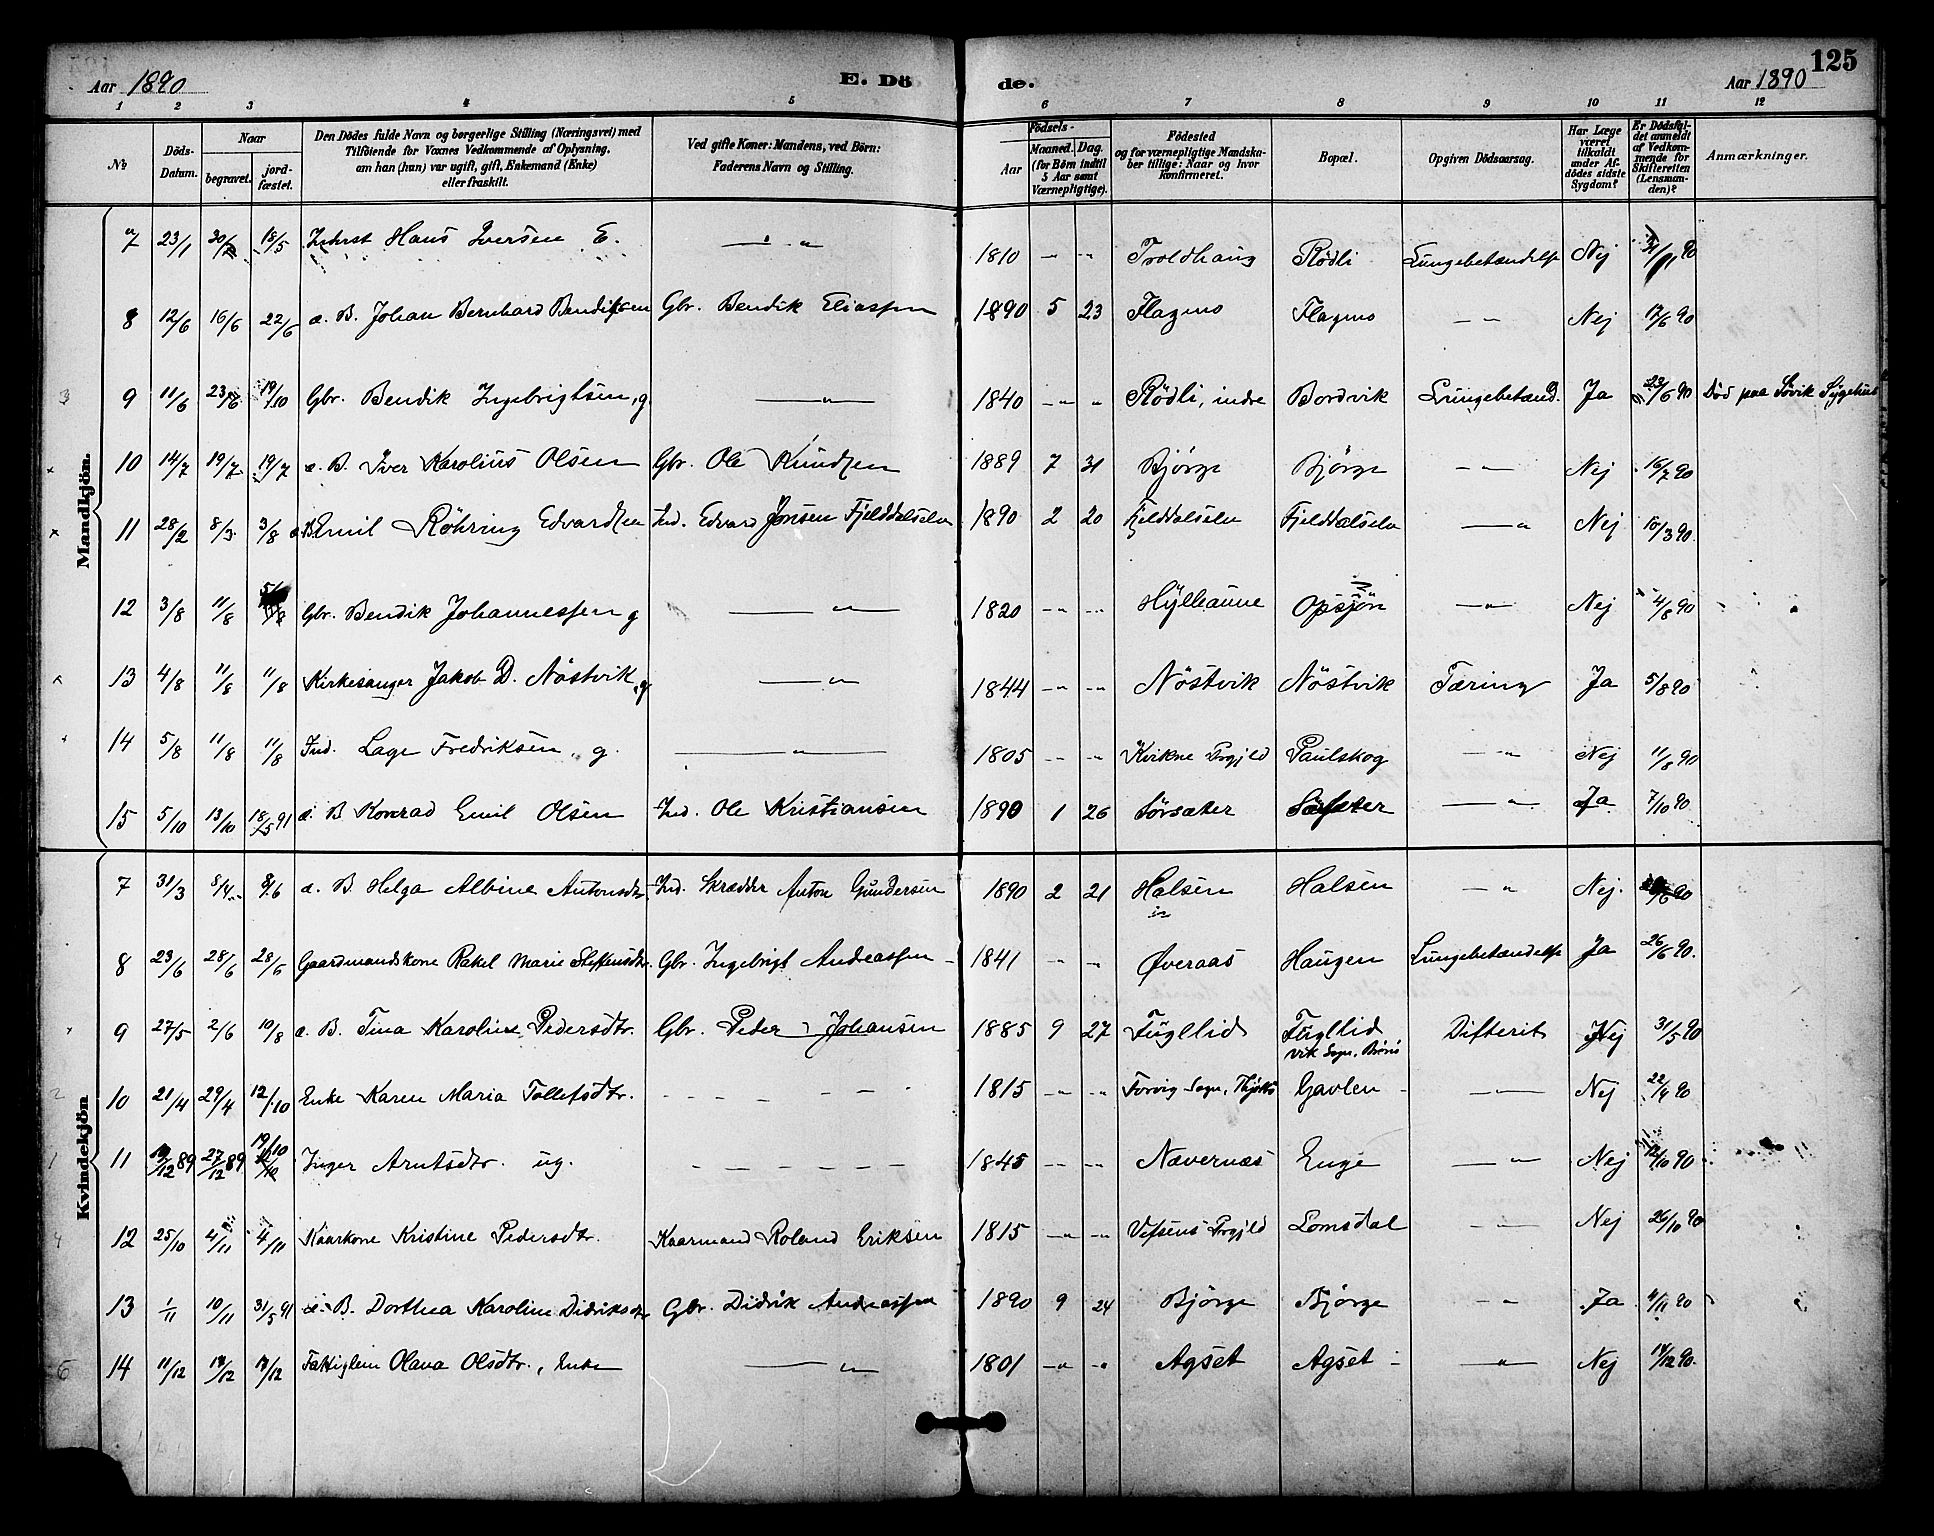 125
Aar 1890 E. Dö de. Aar 1890
1 2 3 4 5 6 7 8 9 10 11 12
№ Döds-Datum. Naar begravet. jordfæstet. Den Dödes fulde Navn og borgerlige Stilling (Næringsvei) med Tilföiende for Voxnes Vedkommende af Oplysning, om han (hun) var ugift, gift, Enkemand (Enke) eller fraskilt. Ved gifte Koner: Mandens, ved Börn: Faderens Navn og Stilling. Födsels- Aar Maaned. Dag. (for Börn indtil 5 Aar samt Værnepligtige). Födested og for værnepligtige Mandskaber tillige: Naar og hvor konfirmeret. Bopæl. Opgiven Dödsaarsag. Har Læge været tilkaldt under Afdödes sidste Sygdom? Er Dödsfaldet anmeldt af Vedkommende for Skifteretten (Lensmanden)? Anmærkninger.
Mandkjön.
7 23/1 18/5 Inderst Hans Iversen E. — " 1810 -"- -"- Troldhaug Rödli Lungebetændelse Nej
8 12/6 16/6 22/6 a. B. Johan Bernhard Bendiksen Gbr. Bendik Eliassen 1890 5 23 Flagmo Flagmo -"- Nej 17/6 90
9 11/6 19/10 Gbr. Bendik Ingebrigtsen, g —"— 1840 -"- " Rödli, indre Bordvik Lungebetænd. Ja 23/6 90 Död paa Søvik Sygehus
10 14/7 19/7 19/7 a. B. Iver Karolius Olsen Gbr. Ole Knudsen 1889 7 31 Bjørge Bjørge -"- Nej 16/7 90
11 28/2 8/3 3/8 a. B. Emil Röhring Edvardsen Ind. Edvard Jönsen Fjelddalselv 1890 2 20 Fjelddalselv Fjelddalselv —" Nej 10/3 90
12 3/8 11/8 Gbr. Bendik Johannessen g —"— 1820 -"- -"- Hylleaune Opsjön —"— Nej 4/8 90
13 4/8 11/8 11/8 Kirkesanger Jakob D. Nöstvik, g —"— 1844 -"- -"- Nöstvik Nöstvik Tæring Ja 5/8 90
14 5/8 11/8 11/8 Ind. Lage Fredriksen, g. —"— 1805 -"- -"- Kvikne Prgjld Paulskog -"- Nej 11/8 90
15 5/10 13/10 18/5 91 a. B Konrad Emil Olsen Ind. Ole Kristiansen 1890 1 26 Sörsæter Sæter —"— Ja 7/10 90
Kvindekjön
7 31/3 8/4 8/6 a. B. Helga Albine Antonsdtr. Ind. Skrædder Anton Gundersen 1890 2 21 Halsen Halsen -"- Nej.
8 23/6 28/6 28/6 Gaardmandskone Rakel Marie Steffensdtr. Gbr. Ingebrigt Andreassen 1841 -"- -"- Øveraas Haugen Lungebetændelse Ja 26/6 90.
9 27/5 2/6 10/8 a. B. Tina Karoline Pedersdtr. Gbr. Peder Johansen 1885 9 27 Fugllid Fugllid Difterit Nej 31/5 90
vik Sogn, Brønø
10 21/4 29/4 12/10 Enke Karen Maria Tollefsdtr. — — — 1815 -"- -"- Forvig Sogn, Gavlen —"— Nej 22/4 90
11 89 27/12 89 19/10 Inger Arntsdtr. ug. — — — 1845 -"- -"- Nævernæs Enge —"— Nej 12/10 90
12 25/10 4/11 4/11 Kaarkone Kristine Pedersdtr. Kaarmand Roland Eriksen 1815 -"- -"- Vefsens Prgjld Lomsdal -"- Nej 26/10 90
13 1/11 10/11 31/5 91 a. B. Dorthea Karoline Didriksdtr Gbr. Didrik Andreassen 1890 9 24 Bjørge Bjørge -"- Ja 4/11 90
14 11/12 Fattiglem Olava Olsdtr., Enke —"— 1801 -"- -"- Agset Agset —"— Nej 14/12 90.